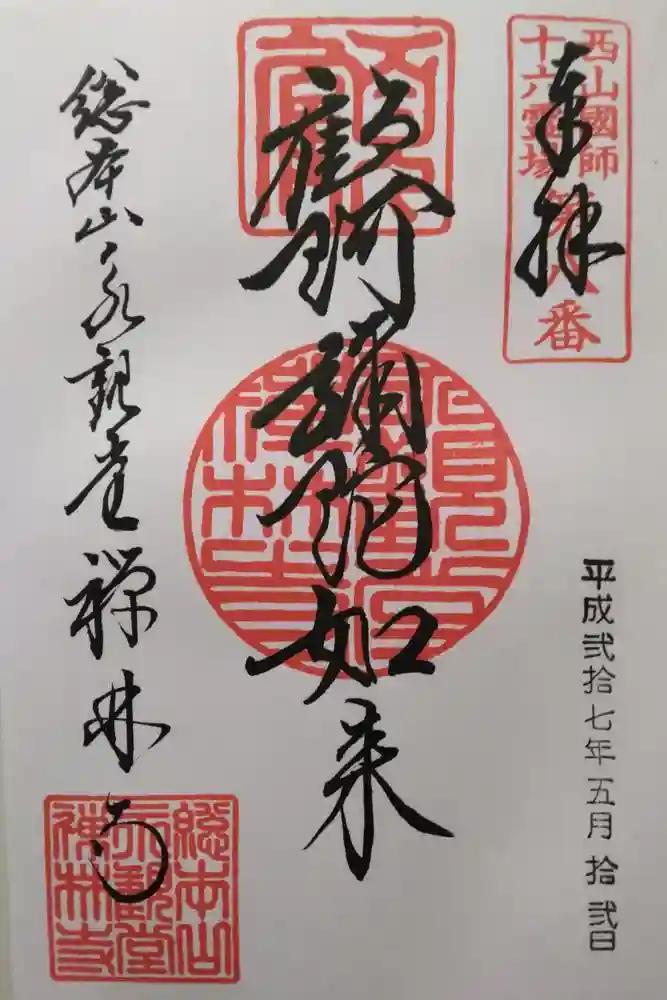 西山國師
十六霊場
第八番
奉拝
平成弐拾七年五月拾弐日
顧阿彌陀如来
総本山永観堂禅林寺
総本山
永觀堂
禅林寺